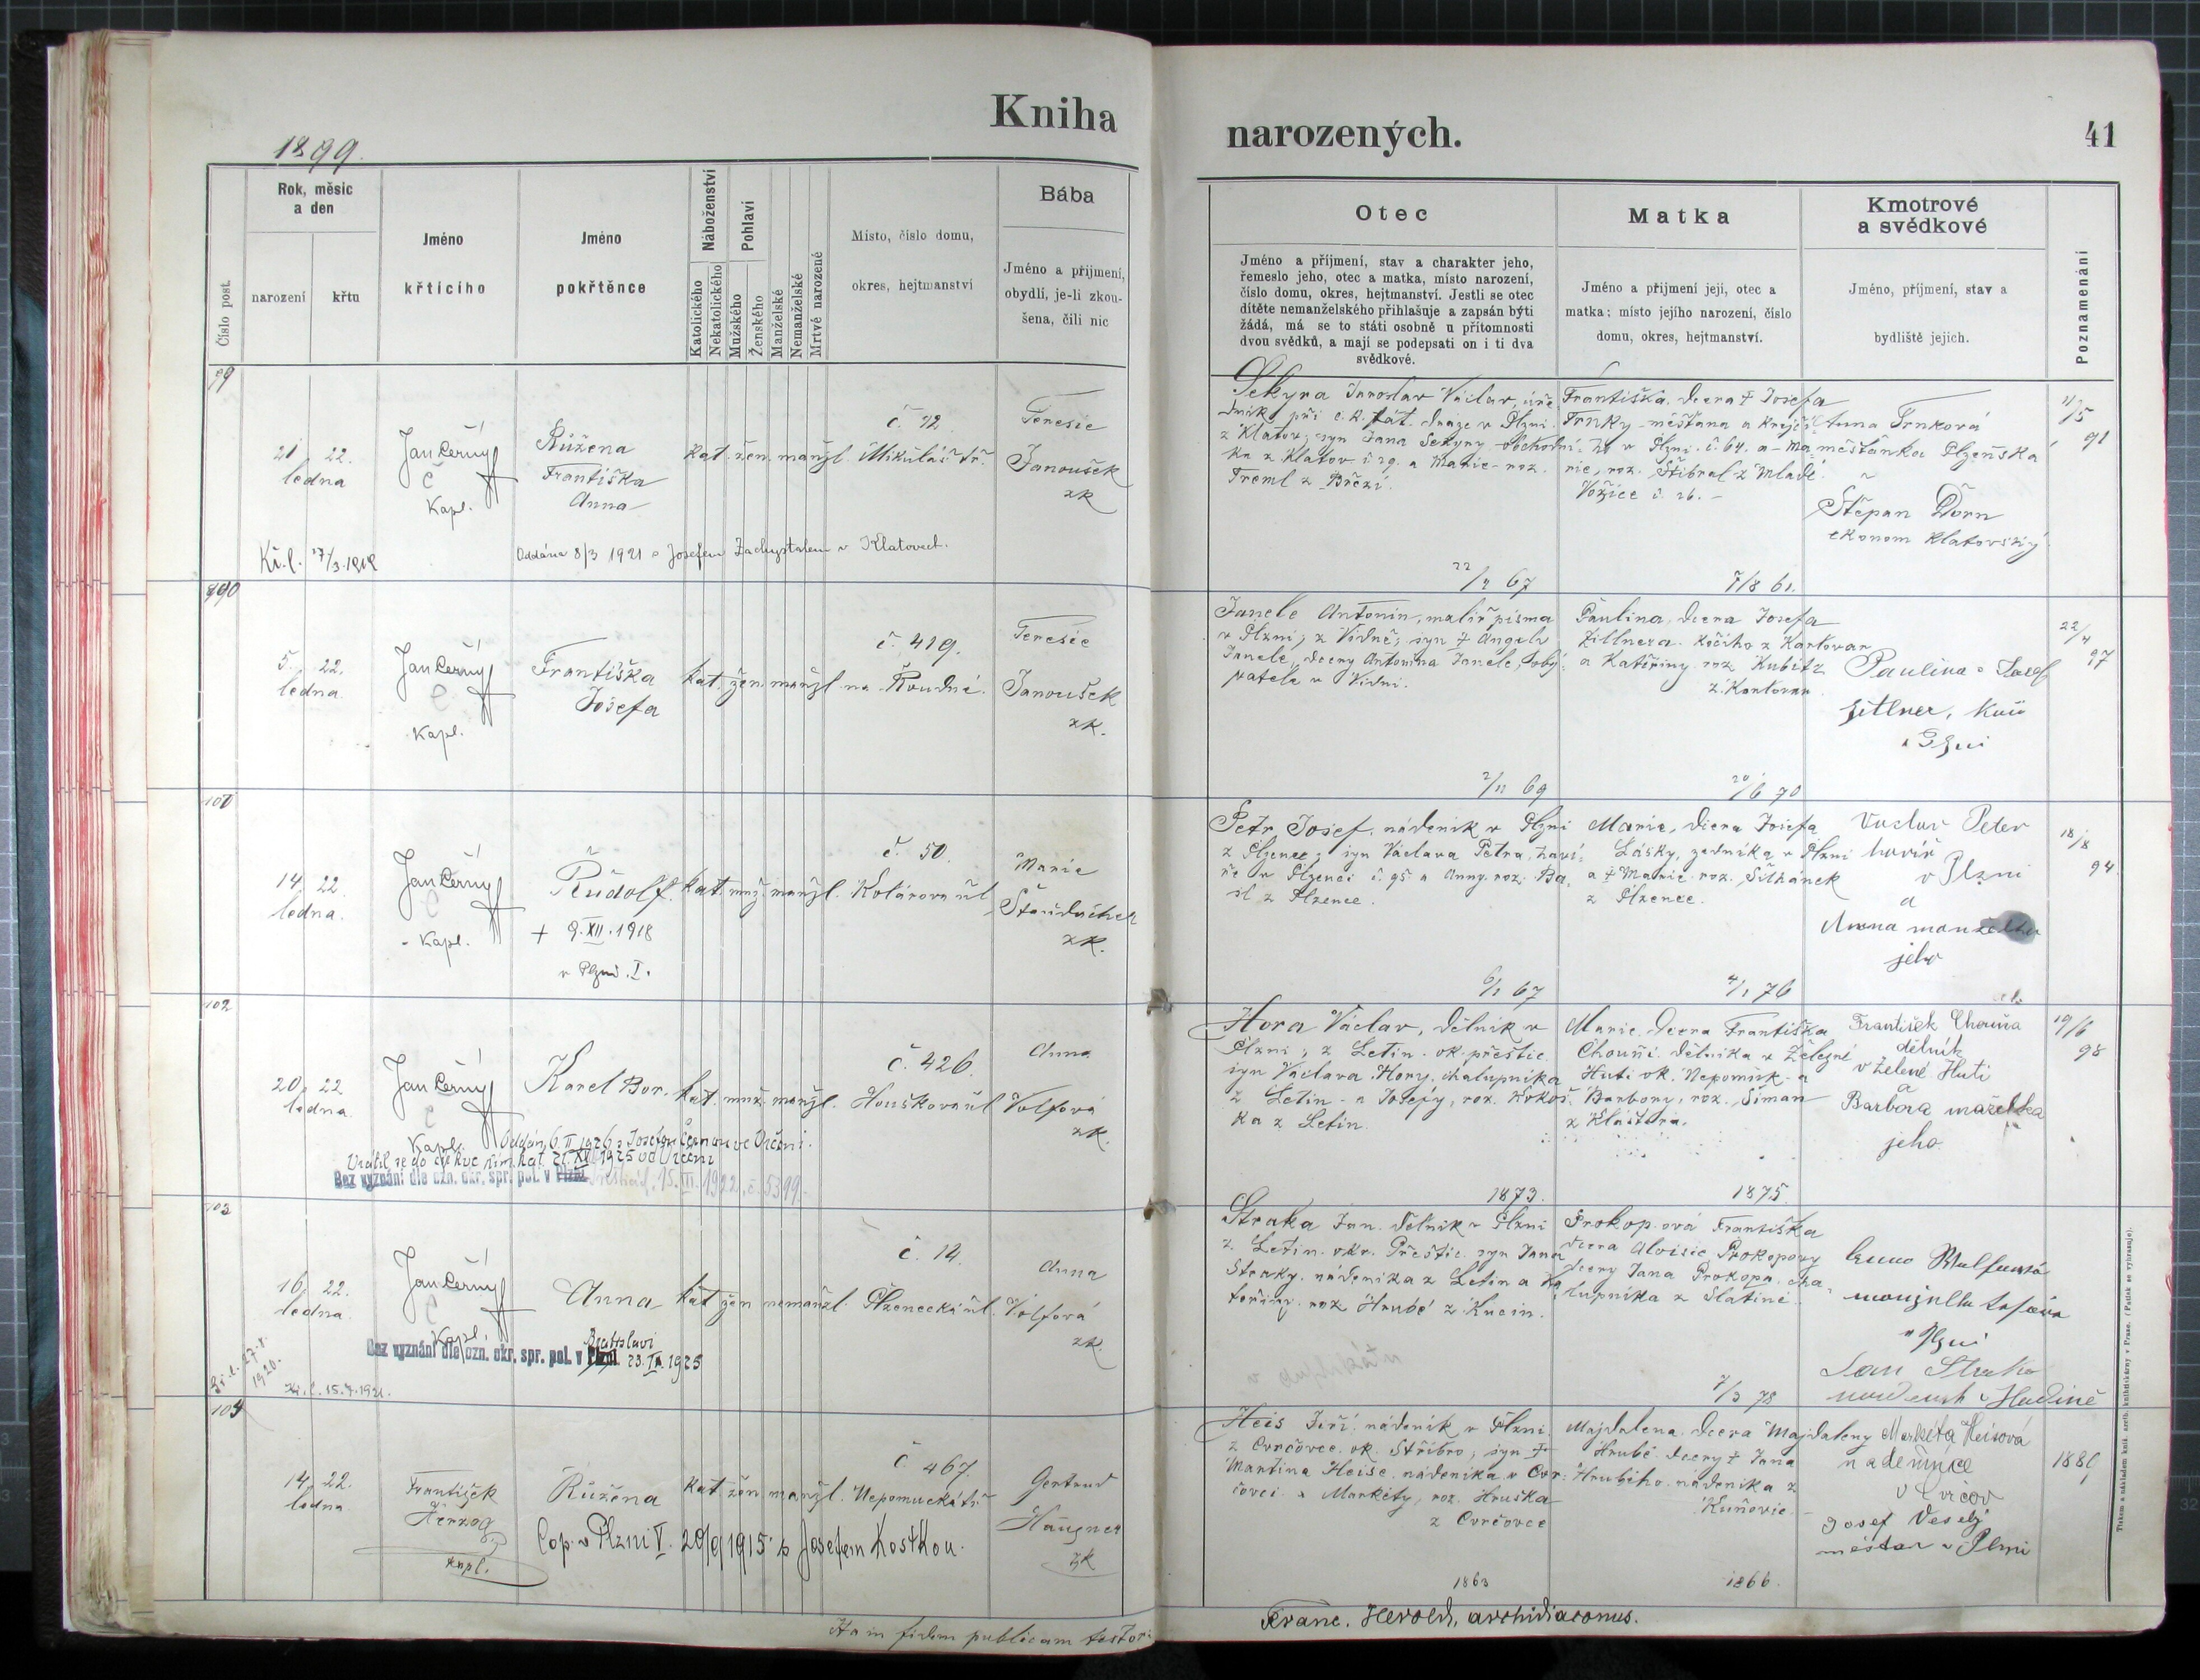 Kniha
narozených.
41
1899.
Číslo post.
Rok, měsíc
a den
narození
křtu
Jméno
křtícího
Jméno
pokřtěnce
Náboženství
Katolického
Nekatolického
Pohlaví
Mužského
Ženského
Manželské
Nemanželské
Mrtvé narozené
Místo, číslo domu,
okres, hejtmanství
Bába
Jméno a příjmení,
obydlí, je-li zkou-
šena, čili nic
Otec
Jméno a příjmení, stav a charakter jeho,
řemeslo jeho, otec a matka, místo narození,
číslo domu, okres, hejtmanství. Jestli se otec
dítěte nemanželského přihlašuje a zapsán býti
žádá, má se to státi osobně u přítomnosti
dvou svědků, a mají se podepsati on i ti dva
svědkové.
Matka
Jméno a příjmení její, otec a
matka; místo jejího narození, číslo
domu, okres, hejtmanství.
Kmotrové
a svědkové
Jméno, příjmení, stav a
bydliště jejich.
Poznamenání
99
21 22.
ledna
Jan Černý
Kapl.
Růžena
Františka
Anna
kat. žen. manžl.
č. 72.
Mikuláš. tř.
Teresie
Janoušek
zk
Kř. l. 17/3. 1919
Oddána 8/3 1921 s Josefem Zachystalem v Klatovech.
Sekyra Jaroslav Václav, úře-
dník při c. k. stát. dráze v Plzni
z Klatov; syn Jana Sekyry obchodní-
ka z Klatov č. 29. a Marie roz.
Treml z Březí.
22/4 67
Františka, dcera † Josefa
Trnky měšťana a krejčí-
ho v Plzni č. 64. a Ma-
rie, roz. Stibral z Mladé
Vožice č. 26.
7/8 61.
Anna Trnková
měšťánka Plzeňská
Štěpan Dorn
ekonom Klatovský
11/5
91
100
5. 22.
ledna.
Jan Černý
Kapl.
Františka
Josefa
kat. žen. manžl.
č. 419.
na Roudné.
Teresie
Janoušek
zk.
Janele Antonín, malíř písma
v Plzni; z Vídně; syn † Angely
Janele, dcery Antonína Janele, oby-
vatele v Vídni.
2/11 69
Paulina, dcera Josefa
Zittnera kočího z Karlovar
a Kateřiny roz. Kubitz
z Karlovar.
20/6 70
Paulina Josef
Zitlner, kočí
v Plzni
22/4
97
101
14 22
ledna.
Jan Černý
Kapl.
Rudolf.
† 9. XII. 1918
v Plzni I.
kat. muž. manžl.
č. 50.
Kolárova ul
Marie
Štaudacher
zk.
Petr Josef, nádeník v Plzni
z Plzence; syn Václava Petra, haví-
ře v Plzenci č. 95 a Anny roz. Ba-
sl z Plzence.
6/1 67
Marie, dcera Josefa
Lásky, zedníka v Plzni
a † Marie roz. Šilhánek
z Plzence.
4/1 76
Vaclav Peter
havíř
v Plzni
a
Anna manželka
jeho
18/8
94
102
20 22
ledna
Jan Černý
Kapl.
Karel Bor.
kat. muž. manžl.
č. 426.
Houškova ul
Anna
Volfová
zk.
Oddán 6. II 1926 s Josefou Černou ve Vrčeni.
Vrátil se do církve řím. kat. 21. XII 1925 ve Vrčeni
Bez vyznání dle ozn. okr. spr. pol. v Plzni 15. III. 1922, č. 5399.
Hora Václav, dělník v
Plzni; z Letin. ok. přeštic.
syn Václava Hory, chalupníka
z Letin a Josefy, roz. Kokoš-
ka z Letin.
1873.
Marie dcera Františka
Chouňi dělníka v Železné
Huti ok. Nepomuk a
Barbory, roz. Šiman
z Kláštera.
1875
František Chouňa
dělník
v Zelené Huti
a
Barbora maželka
jeho
19/6
98
103
16 22.
ledna.
Jan Černý
Kapl.
Anna
kat žen nemanžl.
č. 14.
Plzenecká ul.
Anna
Volfová
zk.
Bez vyznání dle ozn. okr. spr. pol. v Plzni Bratislavi 23. IX. 1925
Kř. l. 27. 1. 1920.
Kř. l. 15. 7. 1921.
Straka Jan, dělník v Plzni
z Letin. okr. Přeštic. syn Jana
Straky, nádeníka z Letin a Ka-
teřiny roz Hrubé z Kucin.
Prokopová Františka
dcera Aloisie Prokopovy
dcery Jana Prokopa, cha-
lupníka z Slatiné.
7/3 78
v Plzni
Jan Straka
104
14 22.
ledna
František
Herzog
kapl.
Růžena
kat žen manžl.
č. 467.
Nepomucká tř
Gertrud
Haugner
zk
Cop. v Plzni V. 20/9 1915 s Josefem Kostkou.
Heis Jiří nádeník v Plzni
z Cvrčovce. ok. Stříbro; syn †
Martina Heise nádeníka v Cvr-
čovci a Markéty, roz. Hruška
z Cvrčovce
1863
Majdalena dcera Majdaleny
Hrubé dcery † Jana
Hrubého nádeníka z
Kuňovic.
1866.
Markéta Heisová
nadeňice
v Cvrcov
Josef Veselý
měšťan v Plzni
188
Ha in fidem publicam testor:
Franc. Herold, archidiaconus.